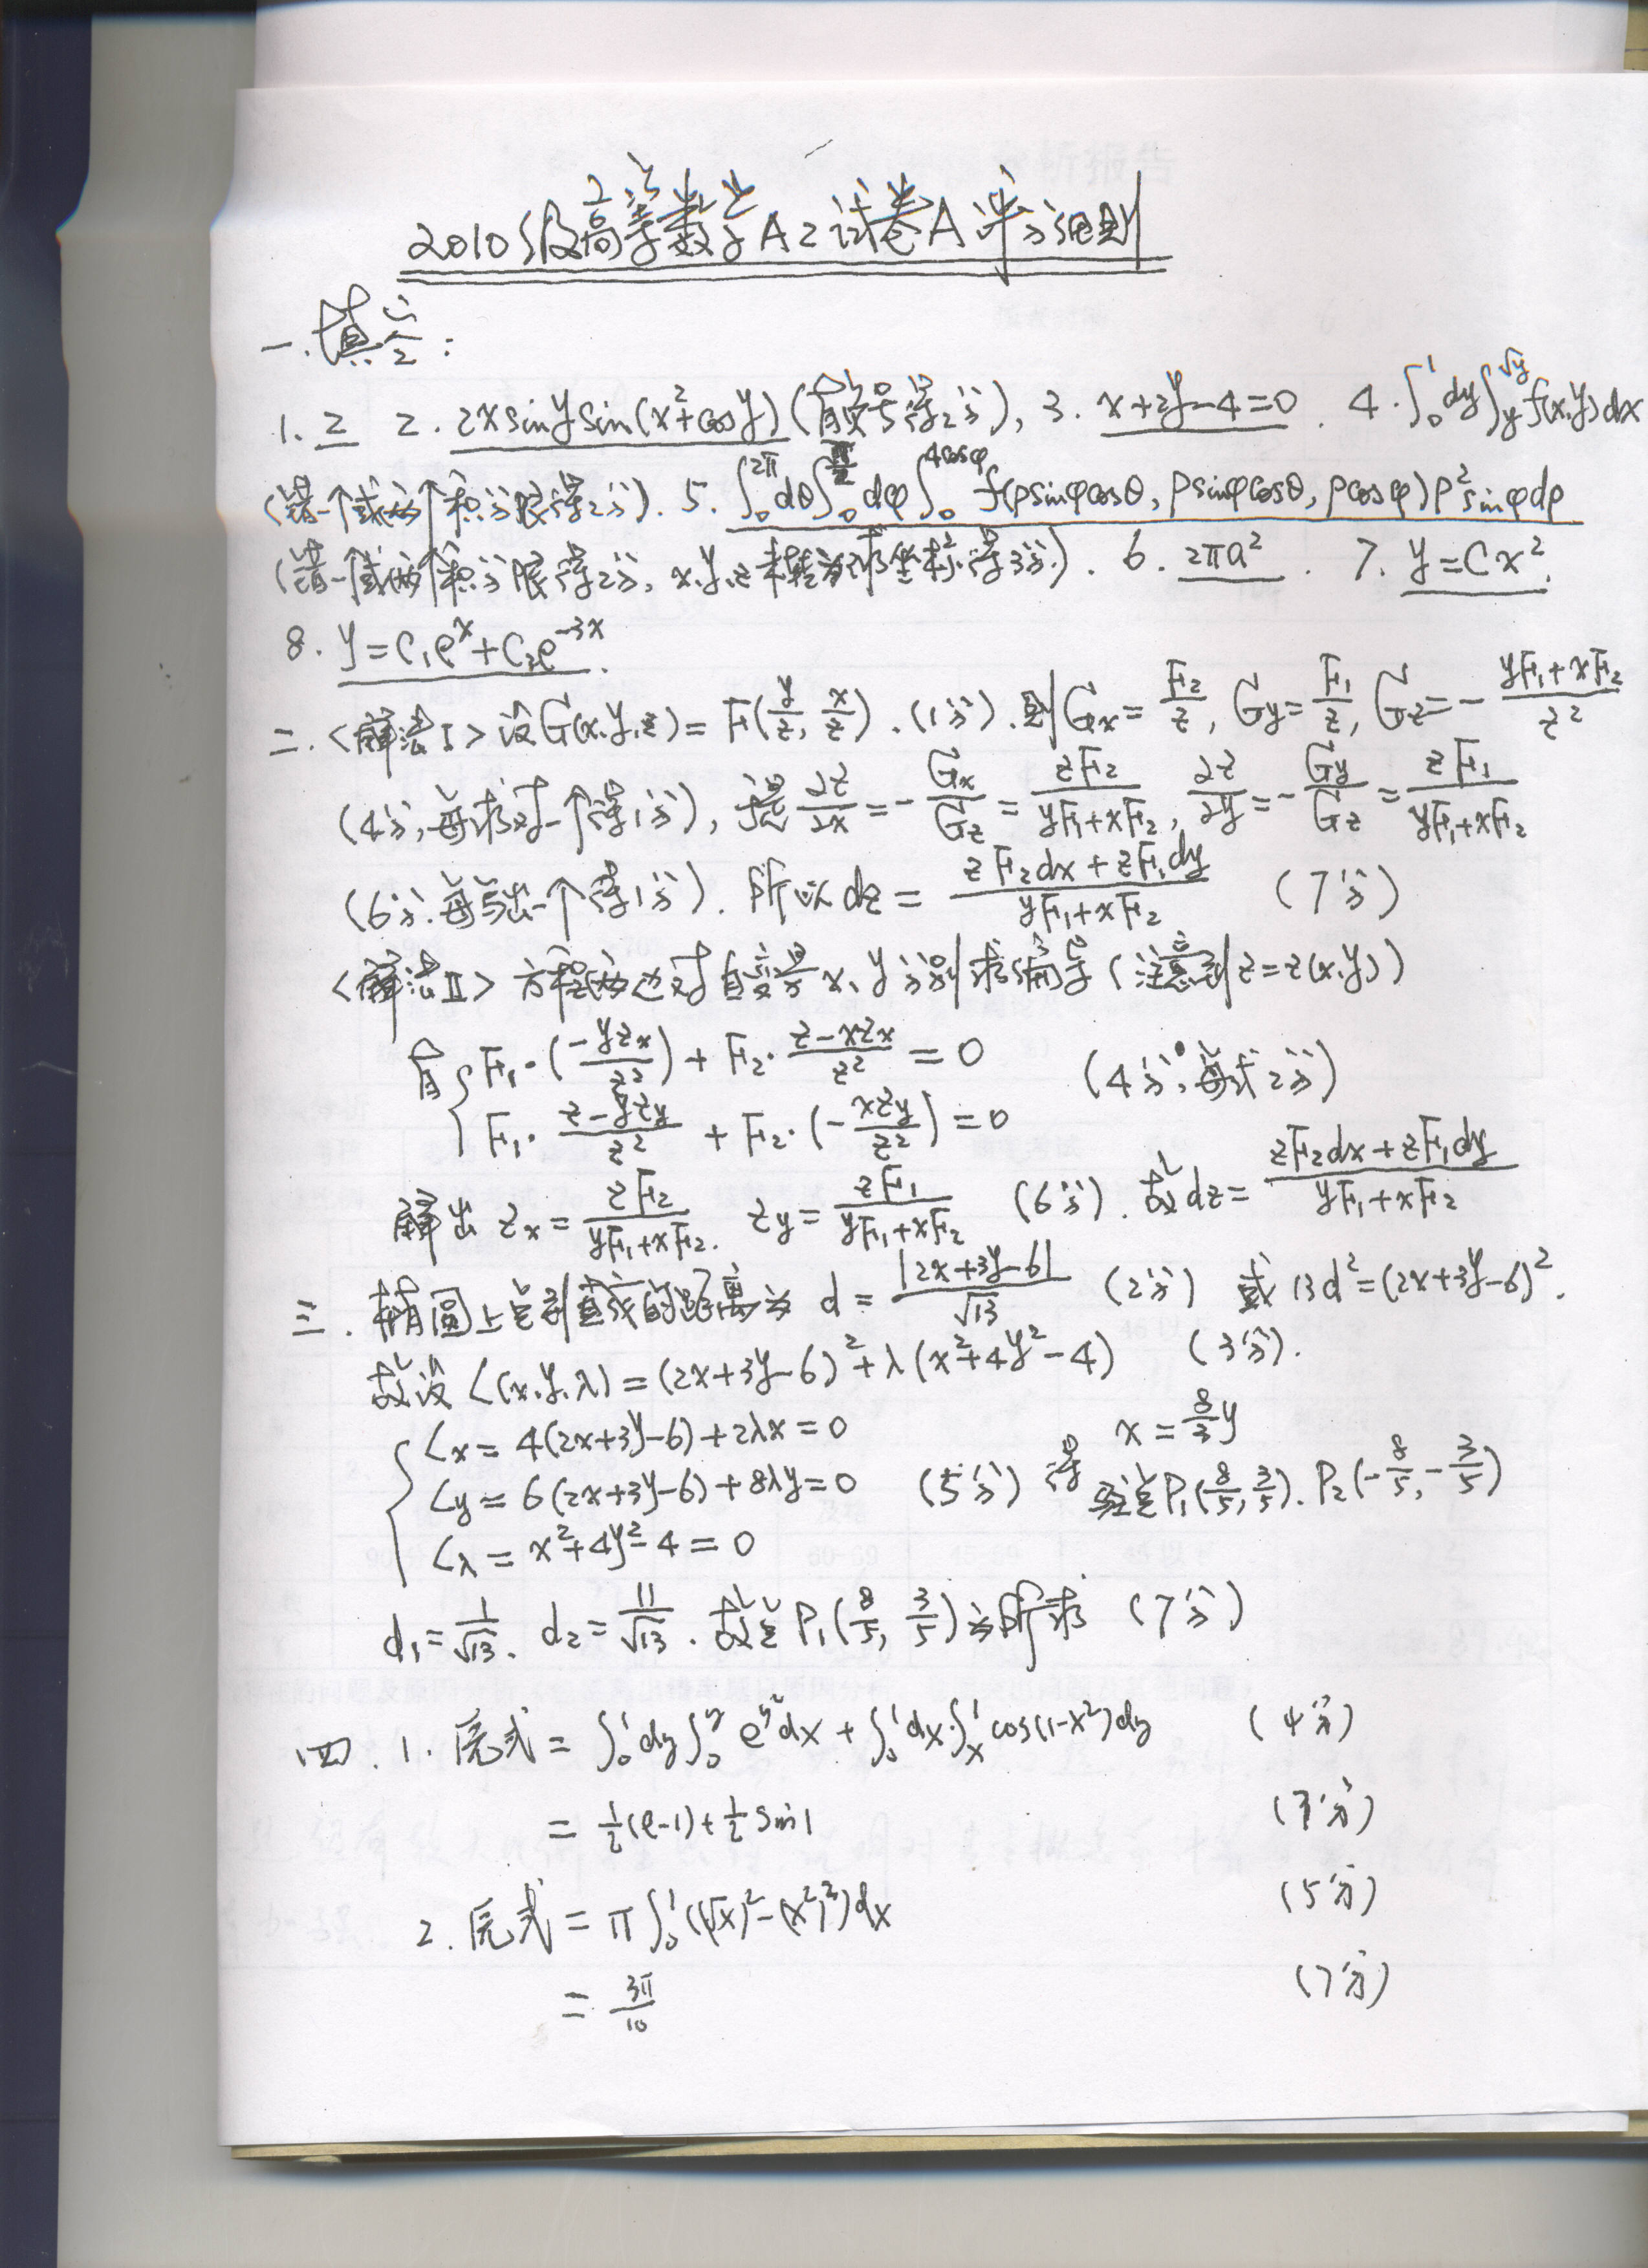 2010级高等数学A2试卷A评分细则
一.填空:
1. 2 2. 2x siny sin(x²+cosy) (有负号得2分), 3. x+2y-4=0. 4. ∫₀¹dy∫_y^{√y} f(x,y)dx
(错一个或两个积分限得2分). 5. ∫₀^{2π}dθ∫₀^{π/2}dφ∫₀^{4cosφ} f(ρsinφcosθ, ρsinφcosθ, ρcosφ)ρ²sinφdρ
(错一个或两个积分限得2分, x.y.z未转为球坐标得3分). 6. 2πa². 7. y=Cx².
8. y=C₁eˣ+C₂e^{-3x}.
二.<解法I> 设G(x.y.z)=F(y/z, x/z). (1分). 则Gx=F₂/z, Gy=F₁/z, Gz=-(yF₁+xF₂)/z²
(4分,每求对一个得1分), 于是 ∂z/∂x=-Gx/Gz=zF₂/(yF₁+xF₂), ∂z/∂y=-Gy/Gz=zF₁/(yF₁+xF₂)
(6分.每写出一个得1分). 所以 dz=(zF₂dx+zF₁dy)/(yF₁+xF₂) (7分)
<解法II> 方程两边对自变量x、y分别求偏导(注意到z=z(x.y))
有{F₁·(-yzx/z²)+F₂·(z-xzx)/z²=0 (4分,每式2分)
F₁·(z-yzy)/z²+F₂·(-xzy/z²)=0
解出 zx=zF₂/(yF₁+xF₂). zy=zF₁/(yF₁+xF₂) (6分). 故dz=(zF₂dx+zF₁dy)/(yF₁+xF₂)
三. 椭圆上点到直线的距离为 d=|2x+3y-6|/√13 (2分) 或 13d²=(2x+3y-6)².
故设 L(x.y.λ)=(2x+3y-6)²+λ(x²+4y²-4) (3分).
{Lx=4(2x+3y-6)+2λx=0 x=8/3 y
Ly=6(2x+3y-6)+8λy=0 (5分) 得 驻点P₁(8/5, 3/5). P₂(-8/5, -3/5)
Lλ=x²+4y²-4=0
d₁=1/√13. d₂=11/√13. 故点P₁(8/5, 3/5)为所求 (7分)
四. 1. 原式=∫₀¹dy∫₀^y e^{y²}dx+∫₀¹dx·∫ₓ¹cos(1-x²)dy (4分)
=½(e-1)+½sin1 (7分)
2. 原式=π∫₀¹((√x)²-(x²)²)dx (5分)
=3π/10 (7分)